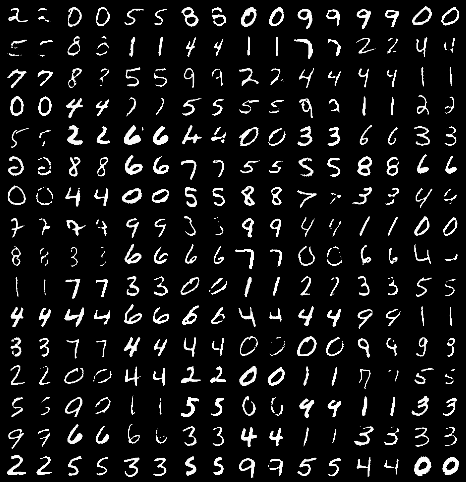 2 2 0 0 5 5 8 8 0 0 9 9 9 9 0 0
5 5 8 8 1 1 4 4 1 1 7 7 2 2 4 4
7 7 8 8 5 5 9 9 2 2 4 4 4 4 1 1
0 0 4 4 7 7 5 5 5 5 9 9 1 1 2 2
5 5 2 2 6 6 4 4 0 0 3 3 6 6 3 3
2 2 8 8 6 6 7 7 5 5 5 5 8 8 6 6
0 0 4 4 0 0 5 5 8 8 7 7 3 3 4 4
7 7 7 7 9 9 3 3 9 9 4 4 1 1 0 0
8 8 3 3 6 6 6 6 7 7 0 0 6 6 4
1 1 7 7 3 3 0 0 1 1 2 2 3 3 5 5
4 4 4 4 6 6 6 6 4 4 4 4 9 9 1 1
3 3 7 7 4 4 4 4 0 0 0 0 9 9 9 9
2 2 0 0 4 4 2 2 0 0 1 1 7 7 5 5
5 5 9 0 1 1 5 5 0 0 9 9 1 1 3 3
9 9 6 6 6 6 3 3 4 4 1 1 3 3 3 3
2 2 5 5 3 3 5 5 9 9 5 5 4 4 0 0